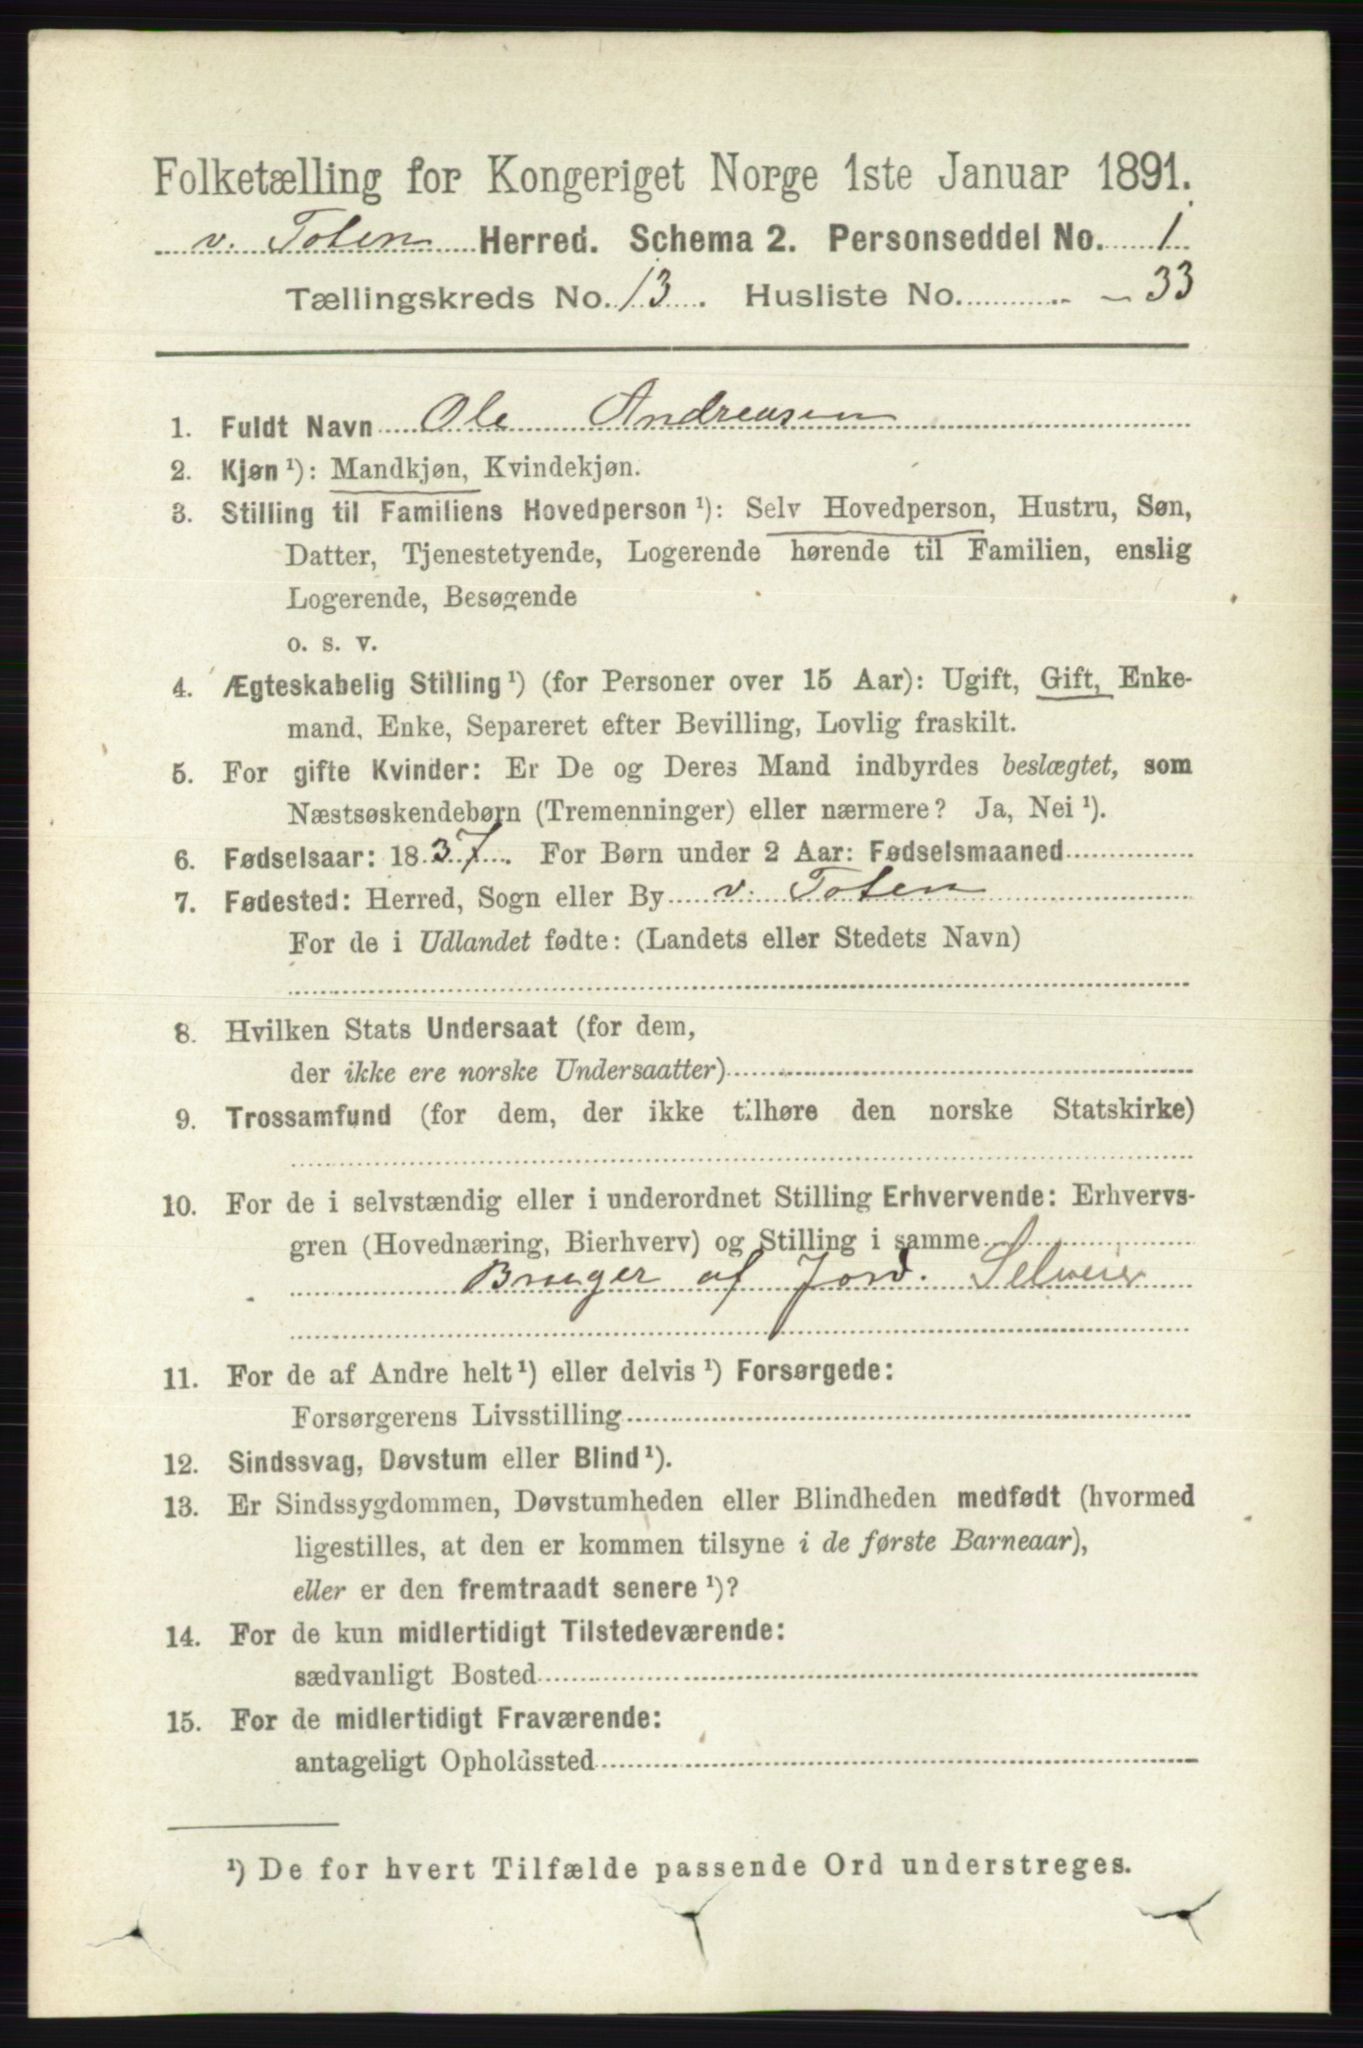 Folketælling for Kongeriget Norge 1ste Januar 1891.
v. Toten Herred. Schema 2. Personseddel No. 1
Tællingskreds No. 13. Husliste No. 33
1. Fuldt Navn Ole Andreasen
2. Kjøn ¹): Mandkjøn, Kvindekjøn.
3. Stilling til Familiens Hovedperson ¹): Selv Hovedperson, Hustru, Søn,
Datter, Tjenestetyende, Logerende hørende til Familien, enslig
Logerende, Besøgende
o. s. v.
4. Ægteskabelig Stilling ¹) (for Personer over 15 Aar): Ugift, Gift, Enke-
mand, Enke, Separeret efter Bevilling, Lovlig fraskilt.
5. For gifte Kvinder: Er De og Deres Mand indbyrdes beslægtet, som
Næstsøskendebørn (Tremenninger) eller nærmere? Ja, Nei ¹).
6. Fødselsaar: 1837. For Børn under 2 Aar: Fødselsmaaned
7. Fødested: Herred, Sogn eller By v. Toten
For de i Udlandet fødte: (Landets eller Stedets Navn)
8. Hvilken Stats Undersaat (for dem,
der ikke ere norske Undersaatter)
9. Trossamfund (for dem, der ikke tilhøre den norske Statskirke)
10. For de i selvstændig eller i underordnet Stilling Erhvervende: Erhvervs-
gren (Hovednæring, Bierhverv) og Stilling i samme
Bruger af Jord. Selveier
11. For de af Andre helt ¹) eller delvis ¹) Forsørgede:
Forsørgerens Livsstilling
12. Sindssvag, Døvstum eller Blind ¹).
13. Er Sindssygdommen, Døvstumheden eller Blindheden medfødt (hvormed
ligestilles, at den er kommen tilsyne i de første Barneaar),
eller er den fremtraadt senere ¹)?
14. For de kun midlertidigt Tilstedeværende:
sædvanligt Bosted
15. For de midlertidigt Fraværende:
antageligt Opholdssted
¹) De for hvert Tilfælde passende Ord understreges.